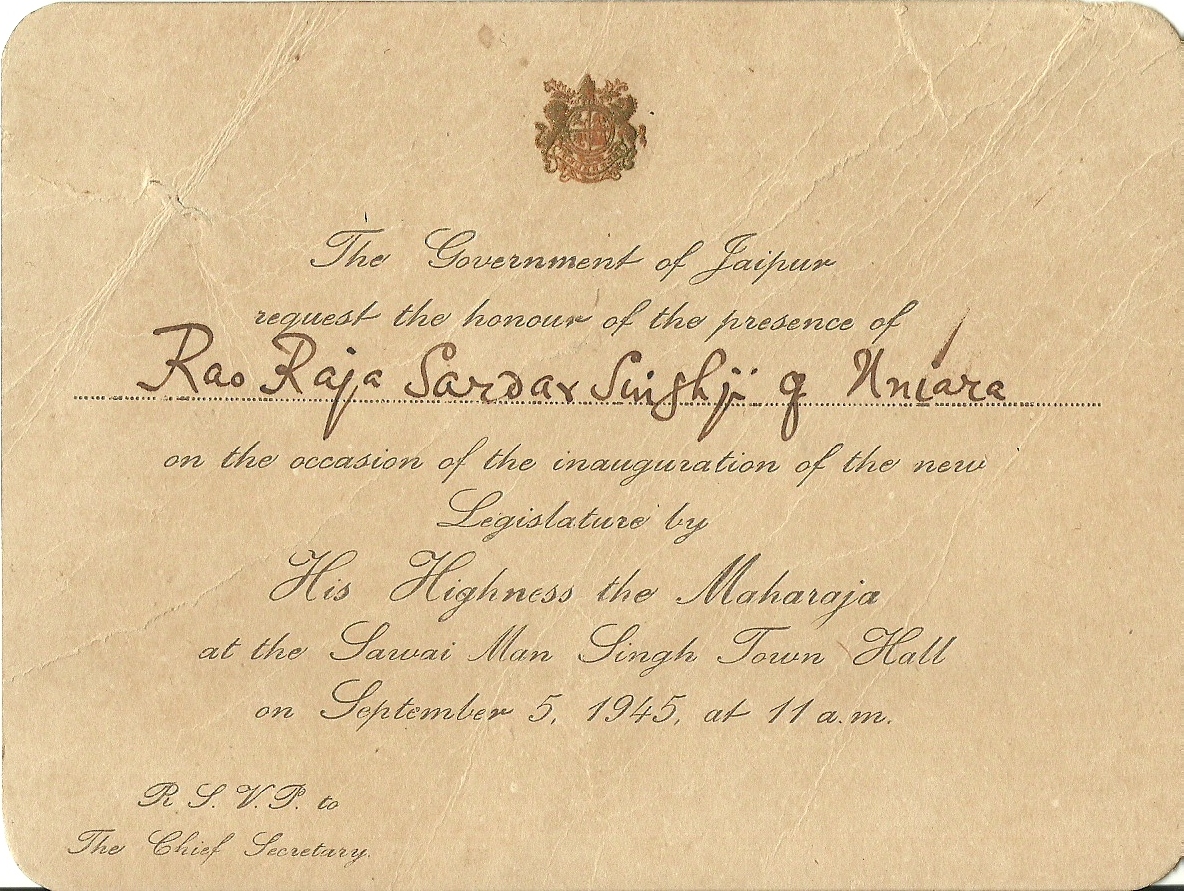 The Government of Jaipur
request the honour of the presence of
Rao Raja Sardar Singhji of Uniara
on the occasion of the inauguration of the new
Legislature by
His Highness the Maharaja
at the Sawai Man Singh Town Hall
on September 5, 1945, at 11 a.m.
R.S.V.P. to
The Chief Secretary.